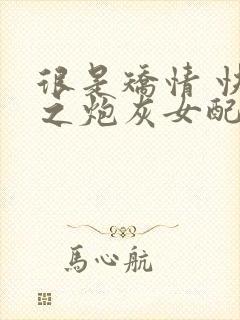 很是矯情 快
之炮灰女配
馬心航